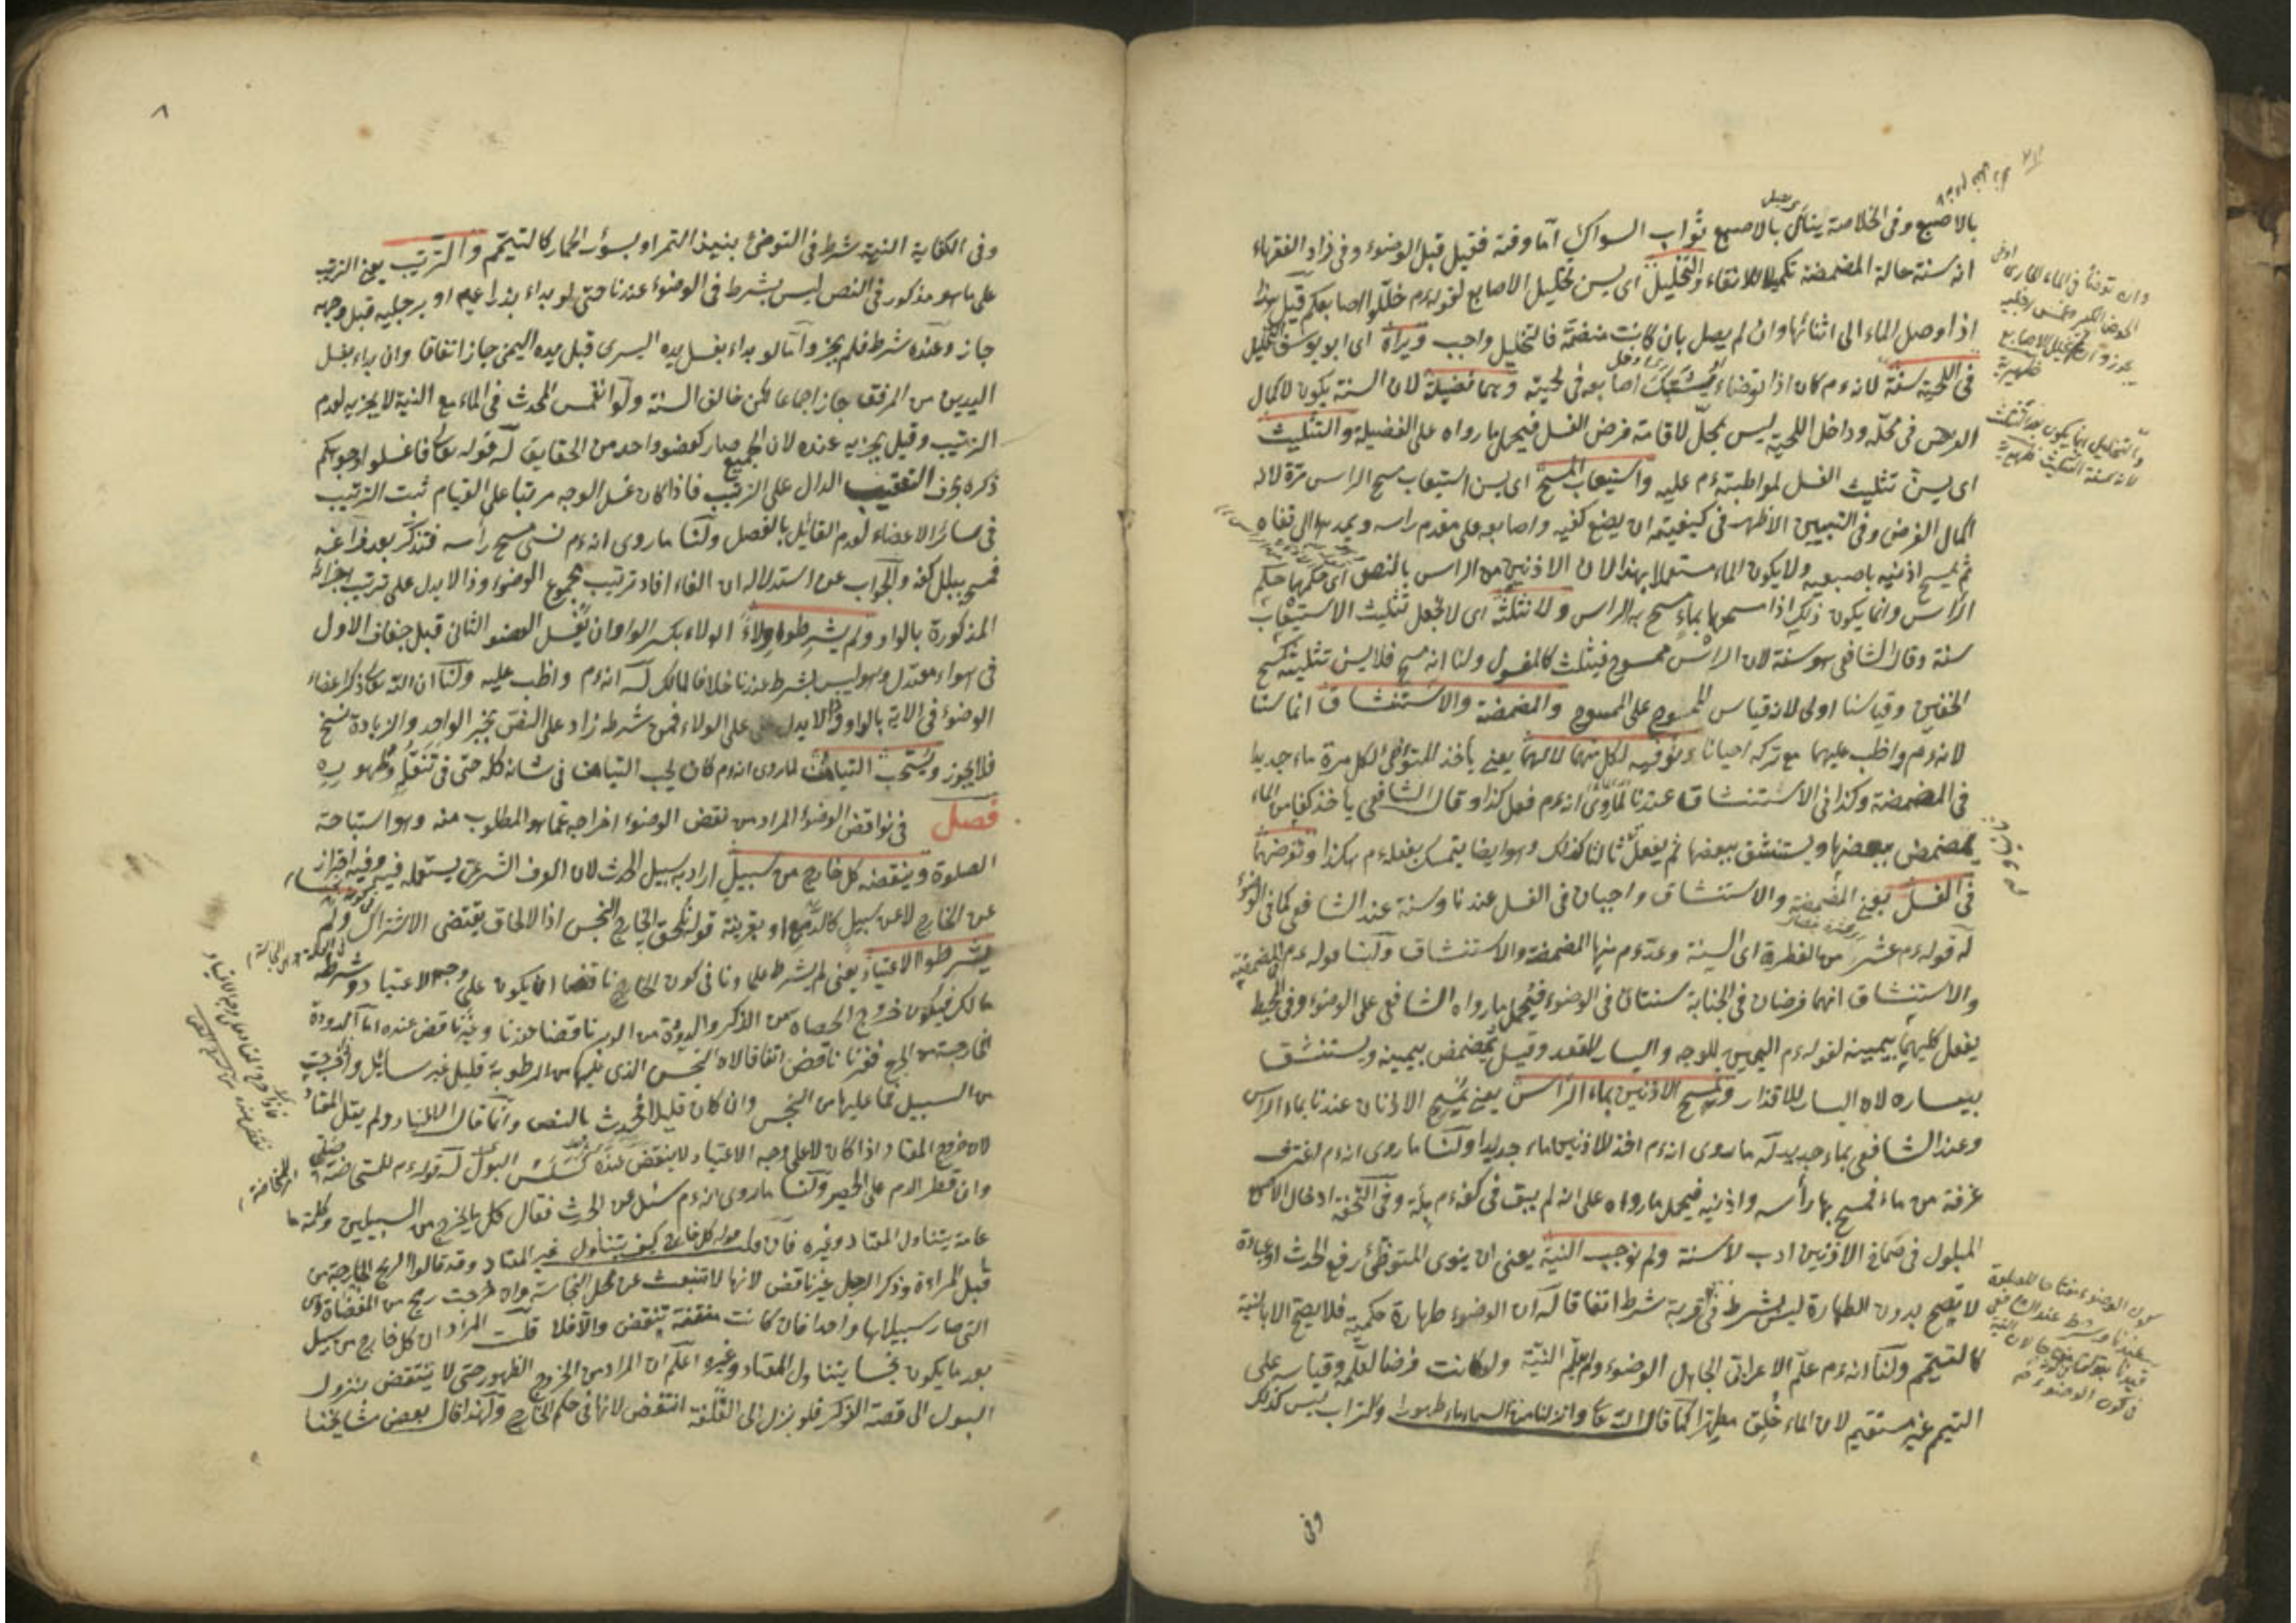 بالاصبع وفى الخلاصة ينال بالاصبع ثواب السواك اما وقته فقيل قبل الوضوء وفى زاد الفقهاء
انه سنة حالة المضمضة تكميلا للانقاء والتخليل اى يسن تخليل الاصابع لقوله ءم خللوا اصابعكم قيل هذا
اذا وصل الماء الى اثنائها وان لم يصل بان كانت منضمة فالتخليل واجب ويراه اى ابو يوسف التخليل
فى اللحية سنة لانه ءم كان اذا توضاء يشبك اصابعه فى لحيته وهما فضيلة لان السنة يكون لاكمال
الفرض فى محله وداخل اللحية ليس بمحل لاقامة فرض الغسل فيحمل ما رواه على الفضيلة والتثليث
اى يسن تثليث الغسل لمواظبته ءم عليه واستيعاب المسح اى يسن استيعاب مسح الراس مرة لانه
اكمال الفرض وفى التبيين الاظهر فى كيفيته ان يضع كفيه واصابعه على مقدم راسه ويمدها الى قفاه
ثم يمسح اذنيه باصبعيه ولا يكون الماء مستعملا بهذا لان الاذنين من الراس بالنص اى حكمها حكم
الراس وانما يكون ذلك اذا مسحهما بماء مسح به الراس ولا نثلثه اى لا نجعل تثليث الاستيعاب
سنة وقال الشافعى هو سنة لان الراس ممسوح فيثلث كالمغسول ولنا انه مسح فلا يسن تثليثه كمسح
الخفين وقياسنا اولى لانه قياس الممسوح على الممسوح والمضمضة والاستنشاق انما سنتا
لانه ءم واظب عليهما مع تركه احيانا ونوفيه لكل منهما لا لهما يعنى يأخذ المتوضى لكل مرة ماء جديدا
فى المضمضة وكذا فى الاستنشاق عندنا لما روى انه ءم فعل كذا وقال الشافعى يأخذ كفا من الماء
يمضمض ببعضها ويستنشق ببعضها ثم يفعل ثالثا كذلك وهو ايضا يتمسك بفعله ءم هكذا ونفرضهما
فى الغسل يعنى المضمضة والاستنشاق واجبان فى الغسل عندنا وسنة عند الشافعى كما فى الوضوء
له قوله ءم عشر من الفطرة اى السنة وعد ءم منها المضمضة والاستنشاق ولنا قوله ءم المضمضة
والاستنشاق انهما فرضان فى الجنابة سنتان فى الوضوء فيحمل ما رواه الشافعى على الوضوء وفى المحيط
يفعل كليهما بيمينه لقوله ءم اليمين للوجه واليسار للمقعد وقيل يمضمض بيمينه ويستنشق
بيساره لان اليسار للاقذار ونمسح الاذنين بماء الراس يعنى يمسح الاذنان عندنا بماء الراس
وعند الشافعى بماء جديد له ما روى انه ءم اخذ للاذنين ماء جديدا ولنا ما روى انه ءم اغترف
غرفة من ماء فمسح بها رأسه واذنيه فيحمل ما رواه على انه لم يبق فى كفه ءم بلة وفى التحفة ادخال
المبلول فى صماخ الاذنين ادب لا سنة ولم نوجب النية يعنى ان ينوى المتوضئ رفع الحدث او عبادة
لا يصح بدون الطهارة ليس بشرط قربة شرط اتفاقا له ان الوضوء طهارة حكمية فلا يصح الا بالنية
كالتيمم ولنا انه ءم علم الاعرابى الجاهل الوضوء ولم يعلم النية ولو كانت فرضا لعلمه وقياسه على
التيمم غير مستقيم لان الماء خلق مطهرا كما قال الله تعا وانزلنا من السماء ماء طهورا والتراب ليس كذلك
وفى
٨
وفى الكفاية النية شرط فى التوضئ بنبيذ التمر او بسؤر الحمار كالتيمم والترتيب يعنى الترتيب
على ما هو مذكور فى النص ليس بشرط فى الوضوء عندنا حتى لو بداء بذراعيه او برجليه قبل وجهه
جاز وعنده شرط فلم يجز وانما لو بداء بغسل يده اليسرى قبل يده اليمنى جاز اتفاقا وان بداء بغسل
اليدين من المرفق جاز اجماعا لكن خالف السنة ولو انغمس المحدث فى الماء مع النية لا يجزيه لعدم
الترتيب وقيل يجزيه عنده لان الجميع صار كعضو واحد من الحقايق له قوله تعا فاغسلوا وجوهكم
ذكره بحرف التعقيب الدال على الترتيب فاذا كان غسل الوجه مرتبا على القيام ثبت الترتيب
فى سائر الاعضاء لعدم القائل بالفصل ولنا ما روى انه ءم نسى مسح رأسه فتذكر بعد فراغه
فمسحه ببلل كفه والجواب عن استدلاله ان الفاء افاد ترتيب مجموع الوضوء وذا لا يدل على ترتيب اجزائه
المذكورة بالواو ولم يشرطوا ولاء الولاء بكسر الواو ان يغسل العضو الثانى قبل جفاف الاول
فى هواء معتدل وهو ليس بشرط عندنا خلافا لمالك له انه ءم واظب عليه ولنا ان الله تعا ذكر اعضاء
الوضوء فى الاية بالواو وذا لا يدل على الولاء فمن شرطه زاد على النص بخبر الواحد والزيادة نسخ
فلا يجوز ويستحب التيامن لما روى انه ءم كان يحب التيامن فى شانه كله حتى فى تنعله وطهوره
فصل فى نواقض الوضوء المراد من نقض الوضوء اخراجه عما هو المطلوب منه وهو استباحة
الصلوة وينقضه كل خارج من سبيل اراد به سبيل الحدث لان العرف الشرعى يستعمله فيه وفيه احتراز
عن الخارج لا عن سبيل كالدمع او بقرينة قوله نلحق الخارج النجس اذ الالحاق يقتضى الاشتراك ولم
يشرطوا الاعتياد يعنى لم يشرط علماونا فى كون الخارج ناقضا ان يكون على وجه الاعتياد وشرطه
مالك فيكون خروج الحصاة من الذكر والدودة من الدبر ناقضا عندنا وغير ناقض عنده اما الدودة
الخارجة من الجرح فغير ناقض اتفاقا لان النجس الذى عليها من الرطوبة قليل غير سائل واذا خرجت
من السبيل فما عليها من النجس وان كان قليلا فحدث بالنص وانما قال الاعتياد ولم يقل المعتاد
لان خروج المعتاد اذا كان لا على وجه الاعتياد لا ينقض عنده كسلس البول له قوله ءم للمستحاضة صلى
وان قطر الدم على الحصير ولنا ما روى انه ءم سئل عن الحدث فقال كل ما يخرج من السبيلين وكلمة ما
عامة يتناول المعتاد وغيره فان قلت قوله كل خارج كيف يتناول غير المعتاد وقد قالوا الريح الخارجة من
قبل المراءة وذكر الرجل غير ناقض لانها لا تنبعث عن محل النجاسة وان خرجت ريح من المفضاة وهى
التى صار سبيلاها واحدا فان كانت منتنة تنقض والا فلا قلت المراد ان كل خارج من سبيل
بعد ما يكون نجسا يتناول المعتاد وغيره اعلم ان المراد من الخروج الظهور حتى لا ينتقض بنزول
البول الى قصبة الذكر فلو نزل الى القلفة انتقض لانها فى حكم الخارج ولهذا قال بعض مشايخنا